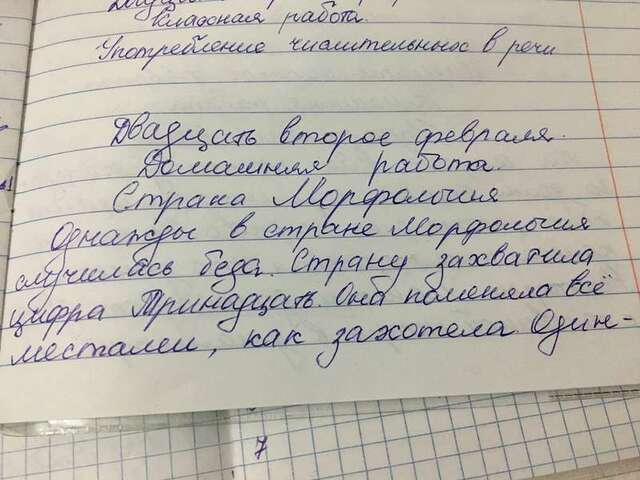 Классная работа.
Употребление числительных в речи
Двадцать второе февраля.
Домашняя работа.
Страна Морфология
Однажды в стране Морфология
случилась беда. Страну захватила
цифра Тринадцать. Она поменяла всё
местами, как захотела. Один-
7